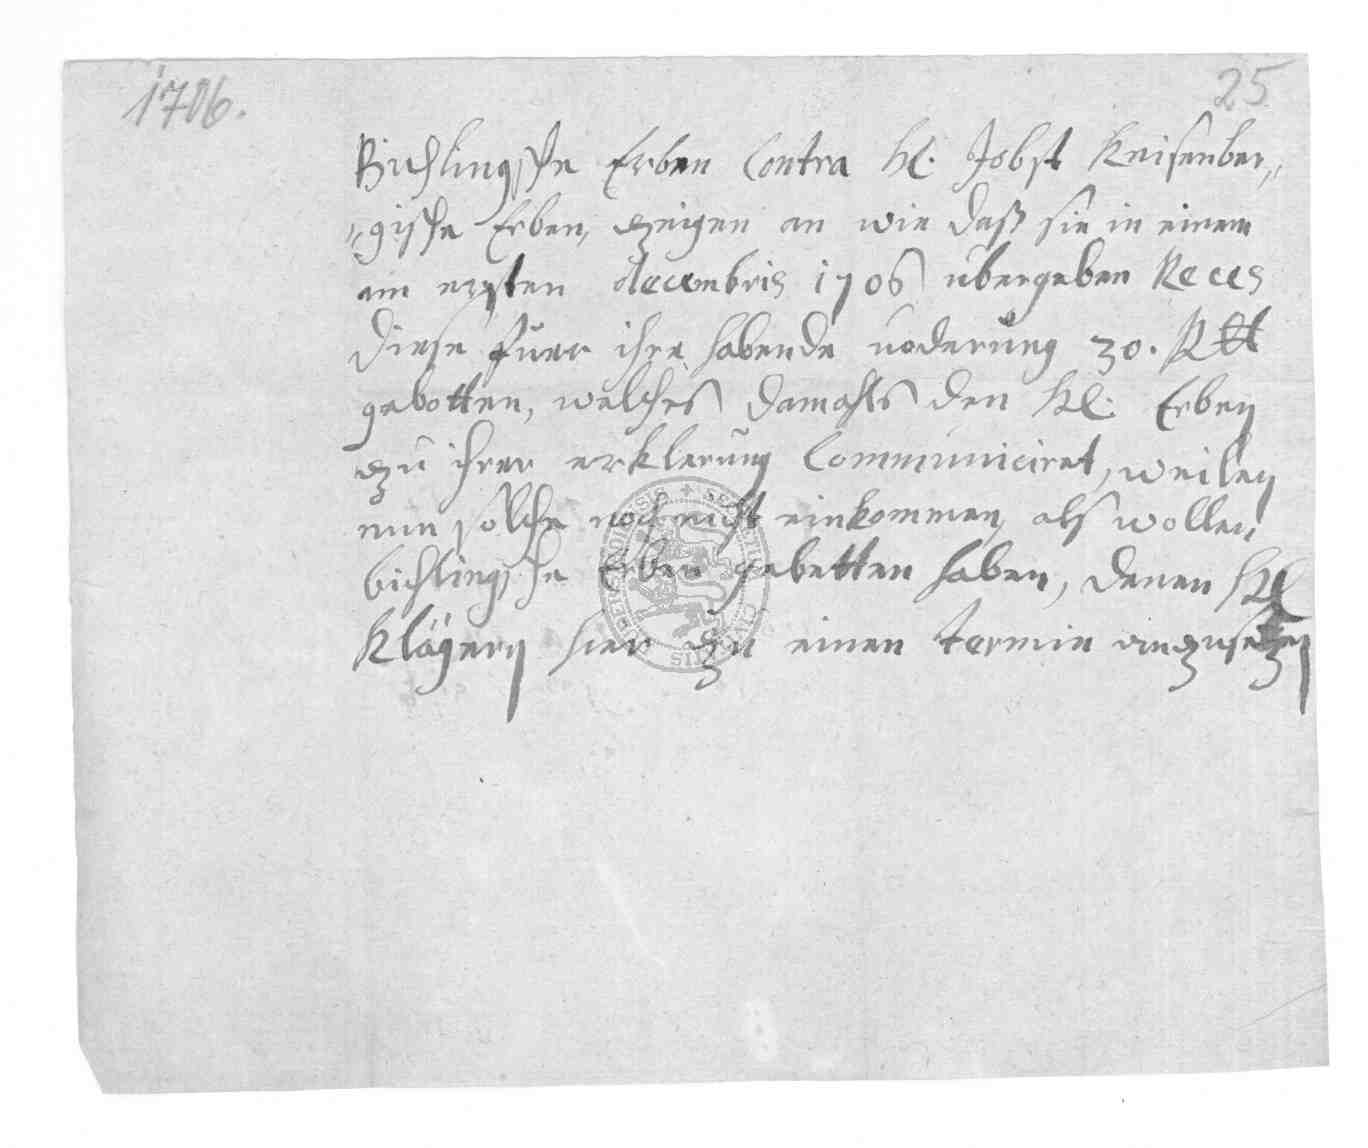 1706.
25
Bichlingsche Erben Contra Kl. Jobst Keisenber„
„gische Erben, zeigen an wie daß sie in einem
am ersten decembris 1706 übergeben Reces
diese fuer ihre habende voderung 30. Rtt
gebotten, welches damahls den Kl. Erben
zu ihrer erklerung Communiciret, weilen
nun solche noch nicht einkommen, alß wollen
bichlingsche Erben gebetten haben, denen Kl
Klägern hier zu einen termin anzusetzen